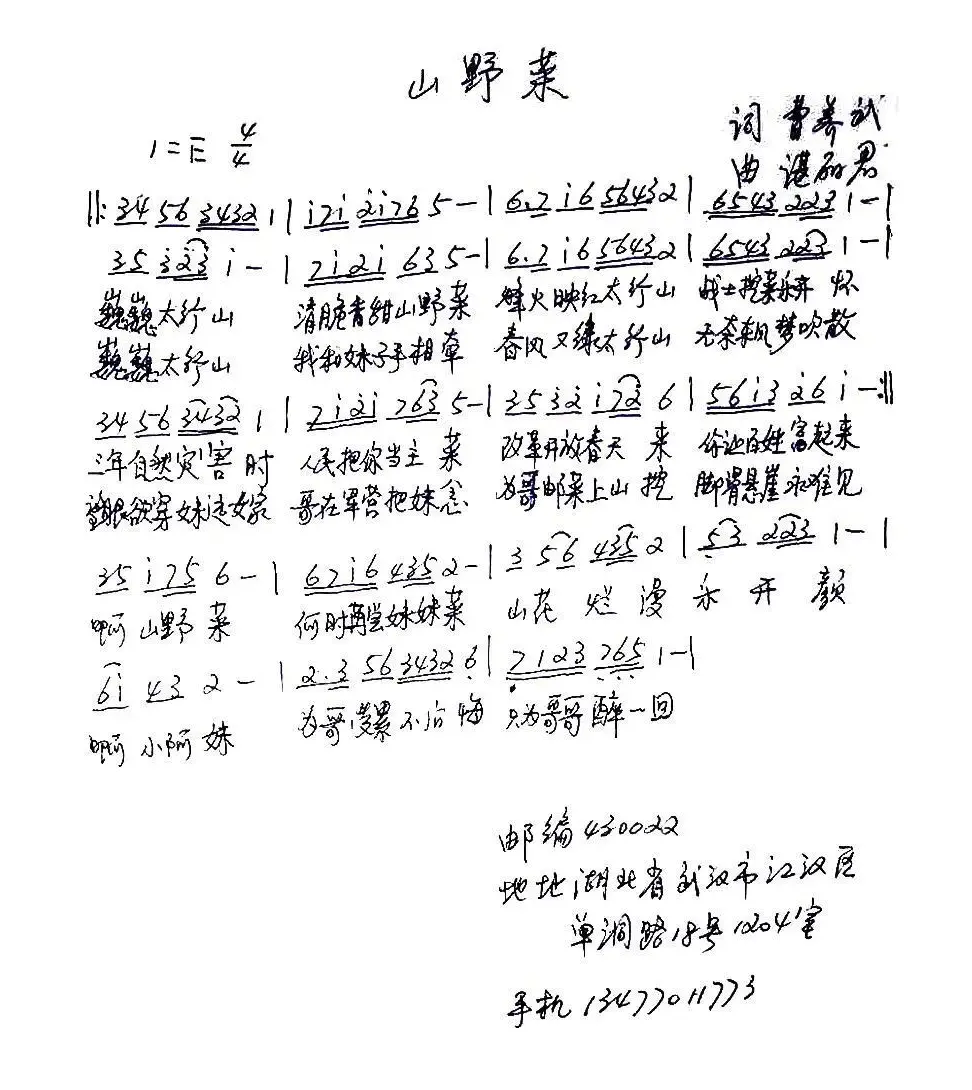 山野菜
1=E 4/4
词 曹养武
曲 谌丽君
‖: 34 56 3432 1 | i7i 2i76 5 - | 6.7 i6 56432 | 6543 223 1 - |
35 323 i - | 7i2i 635 - | 6.7 i6 56432 | 6543 223 1 - |
巍巍太行山 清脆香甜山野菜 烽火映红太行山 战士挖菜乐开怀
巍巍太行山 我和妹子手相牵 春风又绿太行山 无奈秋风梦吹散
34 56 3432 1 | 7i2i 763 5 - | 35 32 i72 6 | 56i3 26 i - :‖
三年自然灾害时 人民把你当主菜 改革开放春天来 你让百姓富起来
望眼欲穿妹远嫁 哥在军营把妹念 为哥邮菜上山挖 脚滑悬崖永难见
35 i75 6 - | 67i6 435 2 - | 3 56 435 2 | 53 223 1 - |
啊 山野菜 何时再尝妹妹菜 山花烂漫永开颜
6i 43 2 - | 2.3 56 3432 6 | 7123 765 1 - |
啊 小阿妹 为哥受累不后悔 只为哥哥醉一回
邮编430022
地址湖北省武汉市江汉区
单洞路18号1204室
手机13477011773